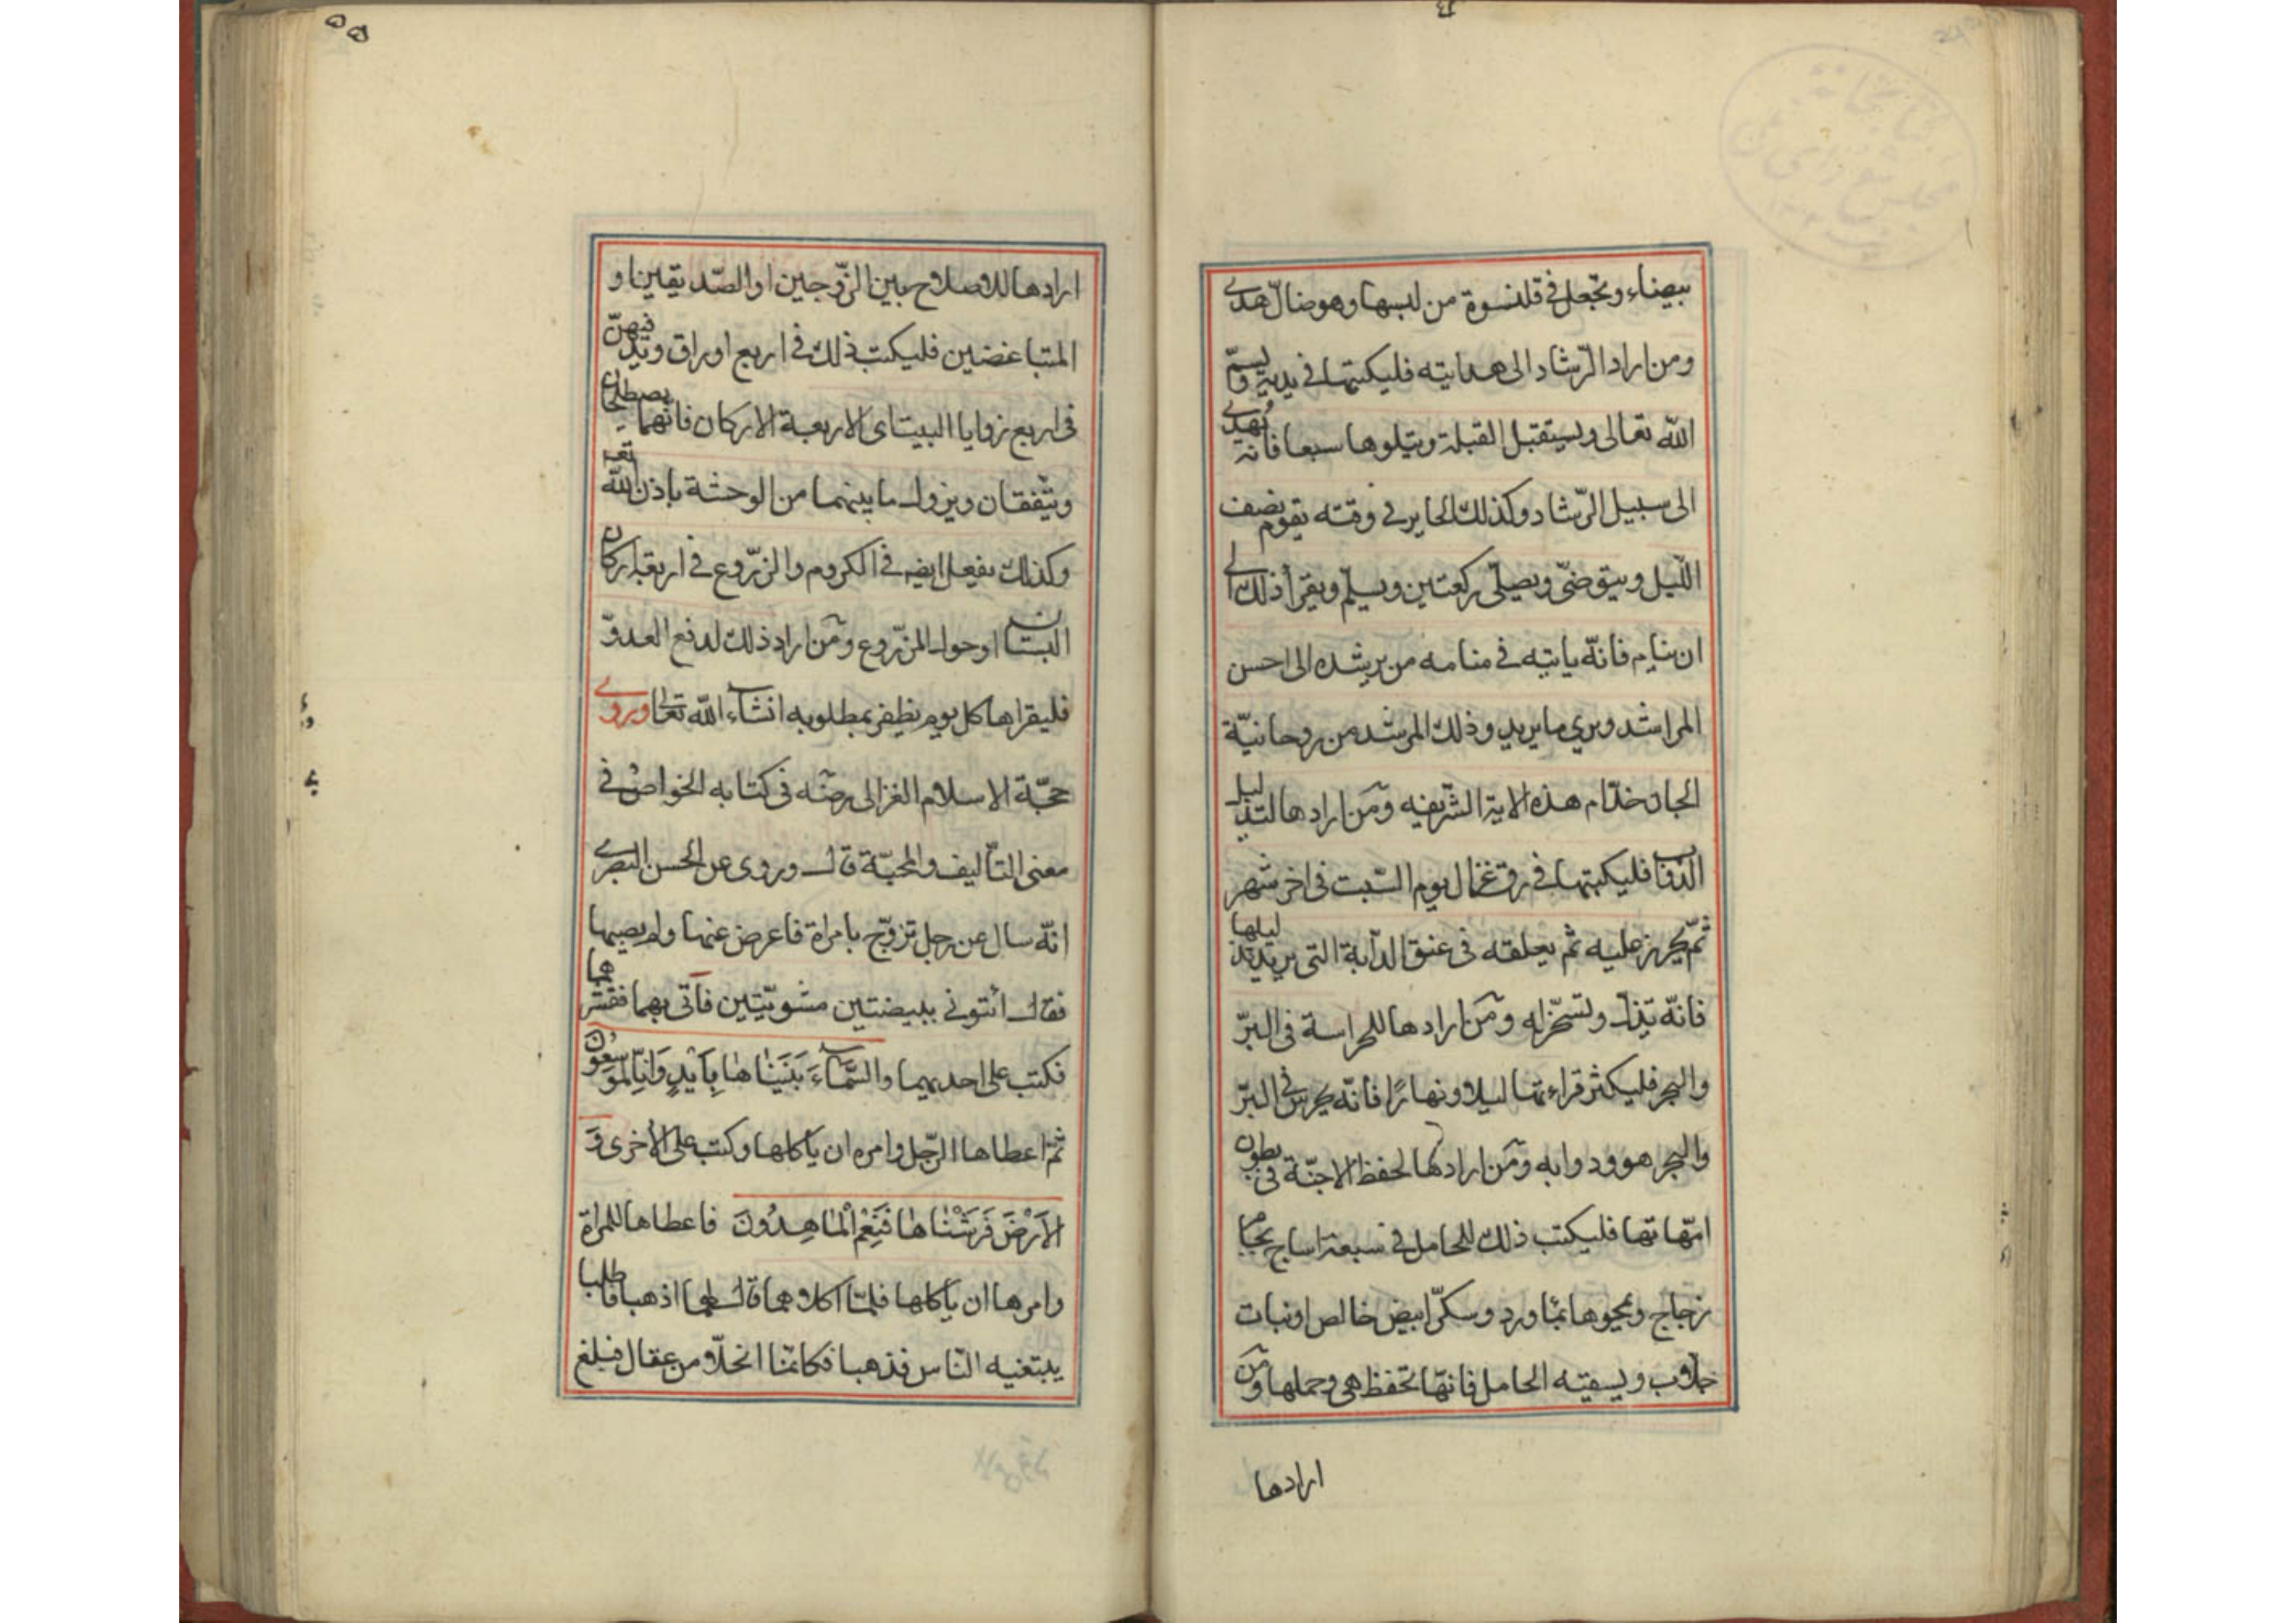 بيضاء وتجعل في قلنسوة من لبسها وهو ضالّ هدى
ومن اراد الرّشاد الى هدايته فليكتبها في يديه وليسمّ
الله تعالى ويستقبل القبلة ويتلوها سبعا فانه يُهدى
الى سبيل الرّشاد وكذلك الحاير في وقته يقوم نصف
اللّيل ويتوضّى ويصلّى ركعتين ويسلّم ويقرأ ذلك الى
ان ينام فانّه ياتيه في منامه من يرشده الى احسن
المراشد ويرى ما يريد وذلك المرشد من روحانيّة
الجان خدّام هذه الاية الشّريفه ومن ارادها لتذليل
الدّواب فليكتبها في رق غزال يوم السّبت في اخر شهر
ثمّ يخرز عليه ثمّ يعلقه في عنق الدّابة التى يريد تذليلها
فانّه تذلّ وتسخّر له ومن ارادها للحراسة في البرّ
والبحر فليكثر قراءتها ليلا ونهارًا فانّه يحرس في البرّ
والبحر هو ودوابه ومن ارادها لحفظ الاجنّة في بطون
امّهاتها فليكتب ذلك للحامل في سبعة اساج بجام
زجاج ويمحوها بماورد وسكّر ابيض خالص او نبات
جلّاب ويسقيه الحامل فانّها تحفظ هى وحملها ومن
ارادها
ارادها للاصلاح بين الزّوجين او الصّديقين او
المتباغضين فليكتب ذلك في اربع اوراق ويدفنهنّ
في اربع زوايا البيت اى الاربعة الاركان فانّهما يصطلحان
ويتّفقان ويزول ما بينهما من الوحشة باذن الله تعـ
وكذلك يفعل ايضه في الكروم والزّروع في اربعة اركان
البستان او حول المزروع ومن اراد ذلك لدفع العدوّ
فليقراها كل يوم يظفر بمطلوبه انشاء الله تعالى ويروى
حجّة الاسلام الغزالى رضـه في كتابه الخواص في
معنى التّاليف والمحبّة قال وروى عن الحسن البصرى
انّه سال عن رجل تزوّج بامراة فاعرض عنها ولم يصبها
فقال ائتونى ببيضتين مشويّتين فأتى بهما فقشّرهما
فكتب على احديهما والسّماءَ بَنَيْناها بِأَيْدٍ وَاِنّا لَمُوسِعُون
ثمّ اعطاها الرّجل وامره ان ياكلها وكتب على الأخرى وَ
الاَرْضَ فَرَشْناها فَنِعْمَ الْماهِدُونَ فاعطاها للمراة
وامرها ان ياكلها فلمّا اكلاهما قال لهما اذهبا فاطلبا
يبتغيه النّاس فذهبا فكانّما انحلّا من عقال فبلغ